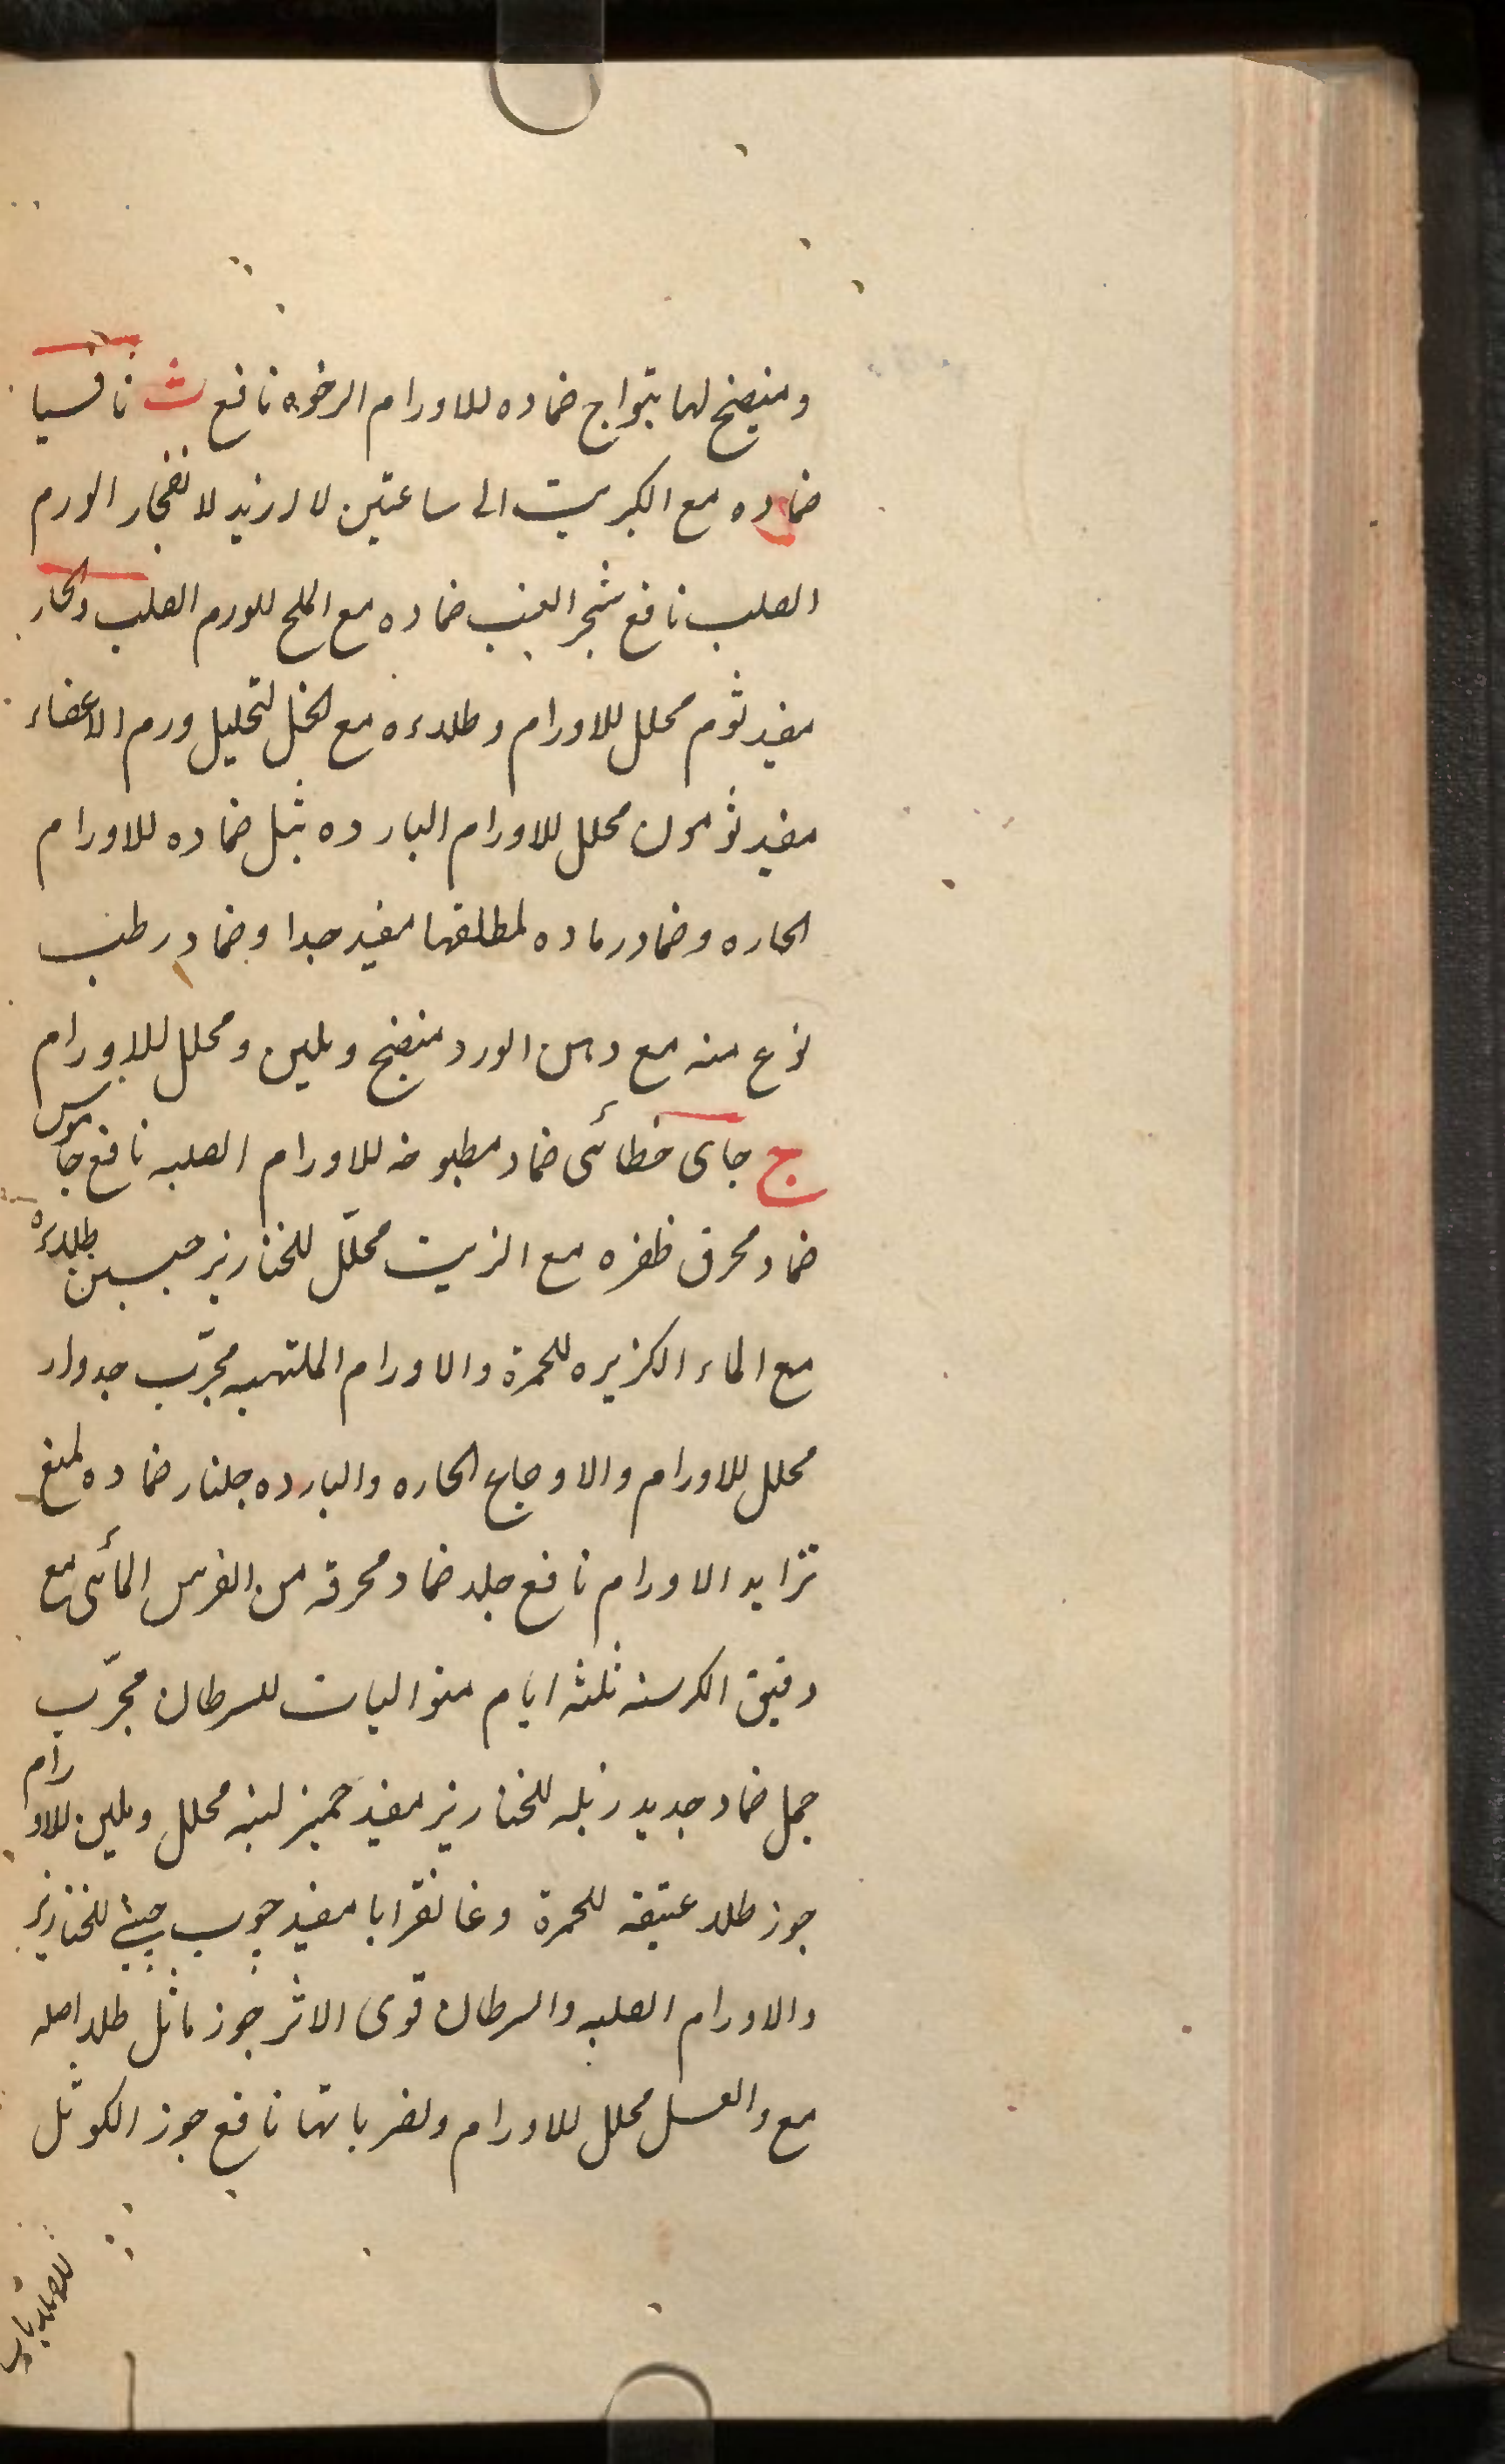 ومنضج لها بتواج ضماده للاورام الرخوه نافع ث ثافسيا
ضماده مع الكبريت الى ساعتين لا ازيد لانفجار الورم
الصلب نافع شجر العنب ضماده مع الملح للورم الصلب والحار
مفيد ثوم محلل للاورام وطلاءه مع الخل لتحليل ورم الاعضاء
مفيد ثومون محلل للاورام البارده ثيل ضماده للاورام
الحاره وضماد رماده لمطلقها مفيد جدا وضماد رطب
نوع منه مع دهن الورد منضج وملين ومحلل للاورام
ج جاى خطائى ضماد مطبوخه للاورام الصلبه نافع جاموس
ضماد محرق ظفره مع الزيت محلّل للخنازير جبسين طلاءه
مع الماء الكزبره للحمرة والاورام الملتهبه مجرّب جدوار
محلل للاورام والاوجاع الحاره والبارده جلنار ضماده لمنع
تزايد الاورام نافع جلد ضماد محرقه من الفرس المائى مع
دقيق الكرسنه ثلثه ايام متواليات للسرطان مجرّب
جمل ضماد جديد زبله للخنازير مفيد جميز لبنه محلل وملين للاورام
جوز طلاء عتيقه للحمرة وغانقرايا مفيد جوب چينى للخنازير
والاورام الصلبه والسرطان قوى الاثر جوز ماثل طلاء اصله
مع والعسل محلل للاورام ولضرباتها نافع جوز الكوثل